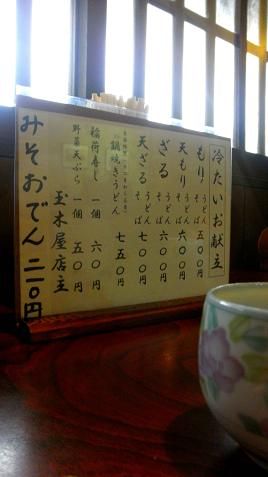 冷たいお献立
もり うどん そば 五〇〇円
天もり うどん そば 六〇〇円
ざる うどん そば 六〇〇円
天ざる うどん そば 七〇〇円
鍋焼きうどん 七五〇円
稲荷寿し 一個 六〇円
野菜天ぷら 一個 五〇円
玉木屋店主
みそおでん 二一〇円